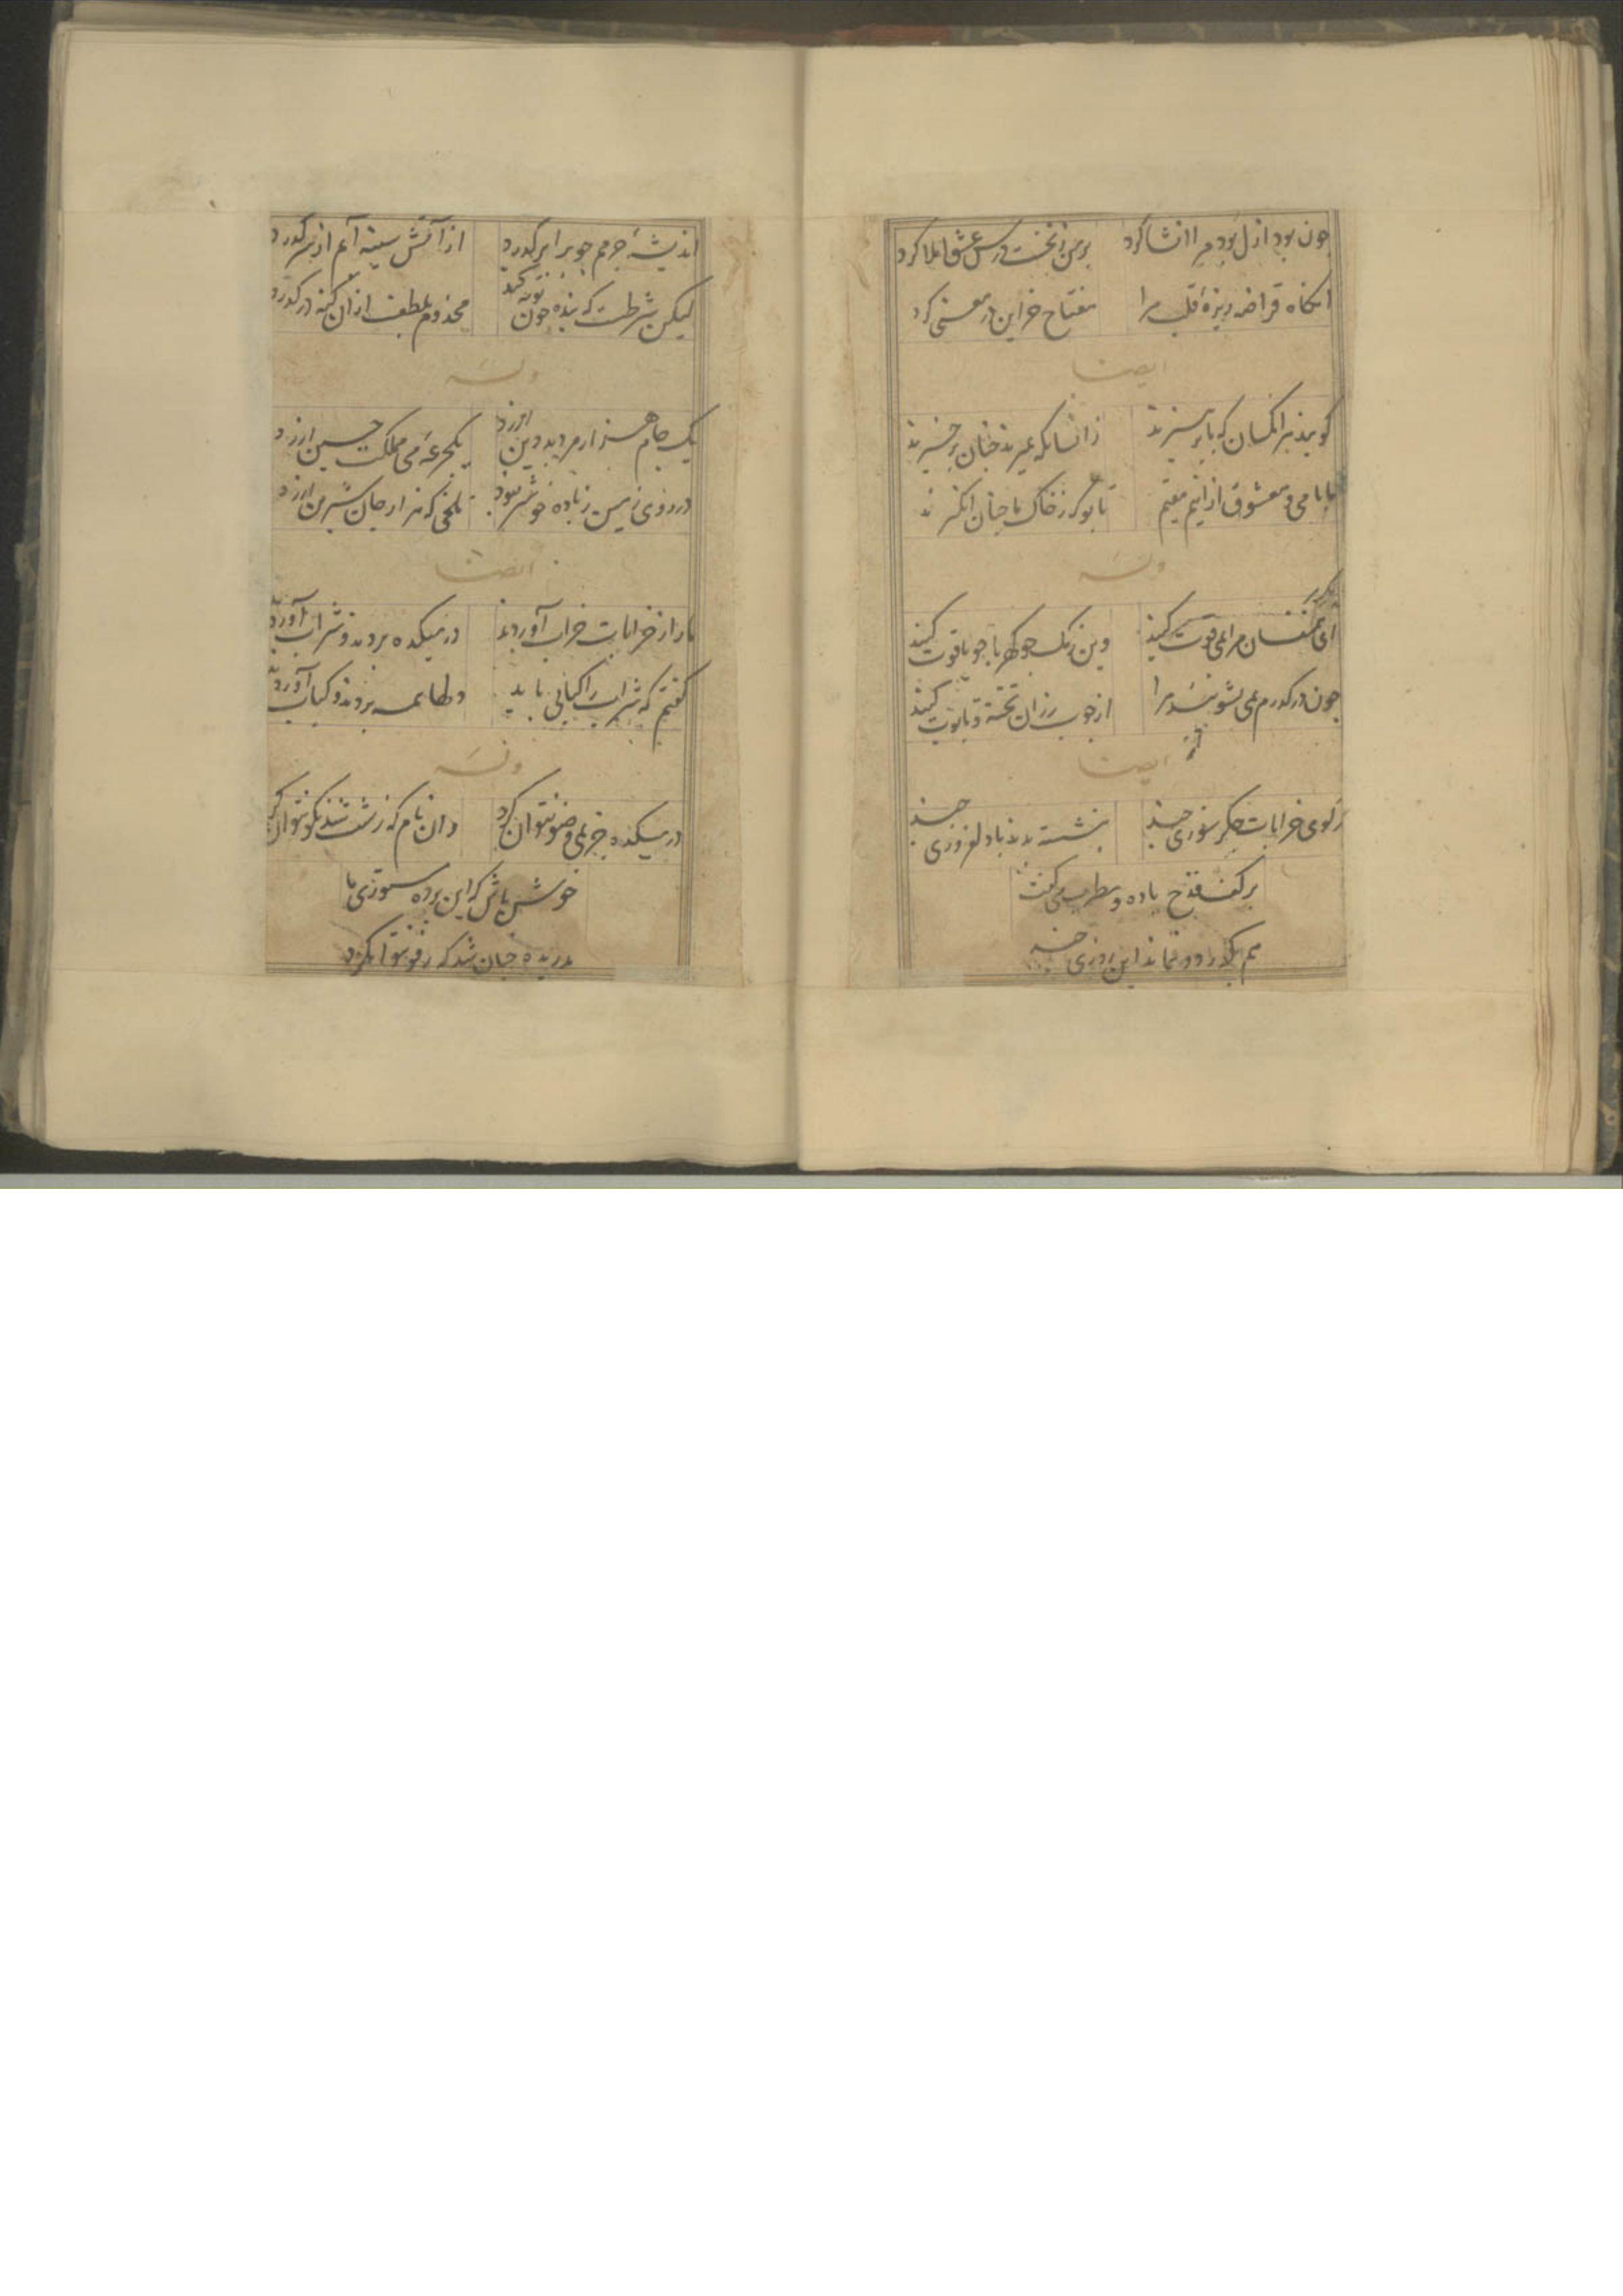 چون بود ازل بود مرا انشا کرد
بر من ز نخست درس عشق املا کرد
آنگاه قراضه ریزهٔ قلب مرا
مفتاح خزاین در معنی کرد
ایضا
گویند هر آنکسان که با پرهیزند
زانسان که بمیرند چنان برخیزند
ما با می و معشوق ازانیم مقیم
تا بو که ز خاک ما چنان انگیزند
وله
ای همنفسان مرا ز می قوت کنید
وین رنگ چو کهربا چو یاقوت کنید
چون درگذرم بمی بشویید مرا
از چوب رزان تخته و تابوت کنید
ایضا
در کوی خرابات جگر سوزی چند
بنشسته بدند با دل افروزی چند
بر کف قدح باده و مطرب می‌گفت
هم بگذرد و نماند این روزی چند
اندیشهٔ جرمم چو برابر گذرد
از آتش سینه آبم از سر گذرد
لیکن شرطست که بنده چون توبه کند
مخدوم بلطف ازان گنه در گذرد
وله
یک جام هزار مرد با دین ارزد
یکجرعه می مملکت چین ارزد
در روی زمین ز باده خوشتر نبود
تلخی که هزار جان شیرین ارزد
ایضا
ما را ز خرابات خراب آوردند
در میکده بردند و شراب آوردند
گفتم که شراب را کبابی باید
دلها همه بردند و کباب آوردند
وله
در میکده جز بمی وضو نتوان کرد
وان نام که زشت شد نکو نتوان کرد
خوش باش که این پرده مستوری ما
بدریده چنان شد که رفو نتوان کرد